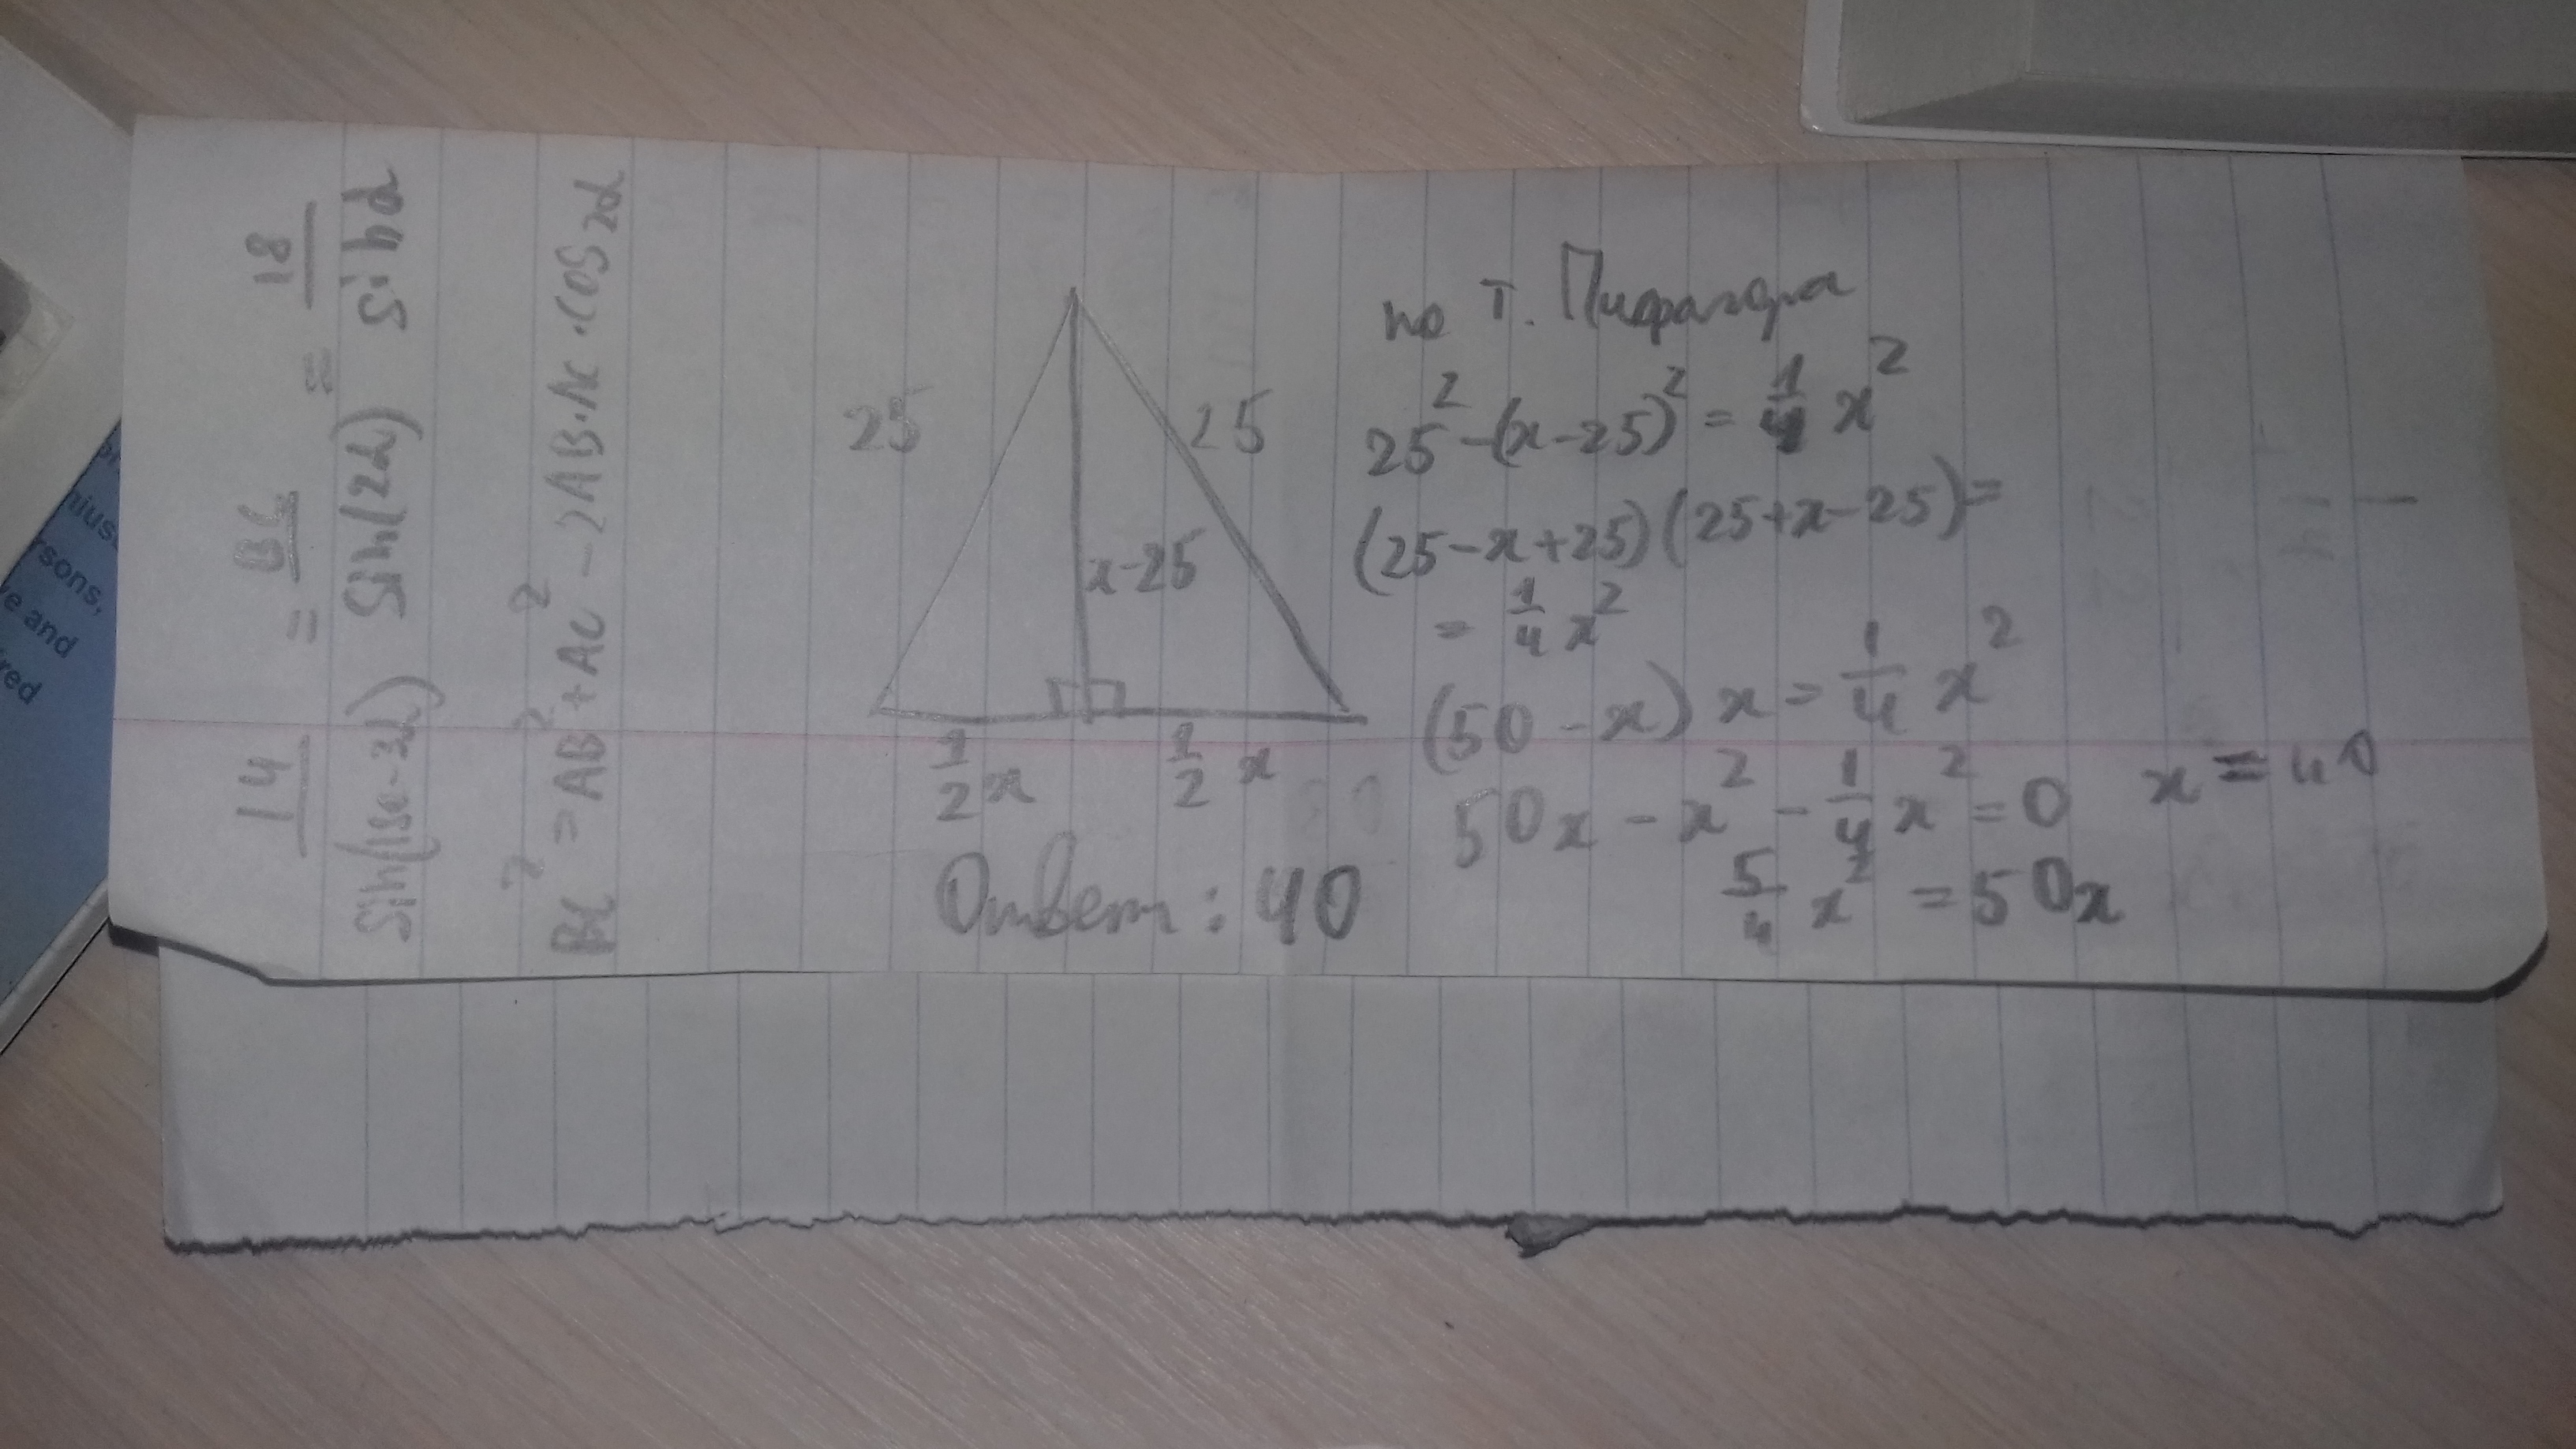 14/sin(180-3α) = BC/sin(2α) = 18/sinα
BC² = AB² + AC² - 2AB·AC·cos2α
25
25
x-25
1/2 x
1/2 x
Ответ: 40
по т. Пифагора
25² -(x-25)² = 1/4 x²
(25-x+25)(25+x-25)=
= 1/4 x²
(50-x) x = 1/4 x²
50x - x² - 1/4 x² = 0
5/4 x² = 50x
x = 40
sons,
e and
red